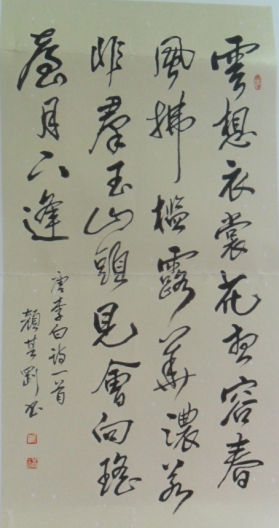 雲想衣裳花想容春
風拂檻露華濃若
非羣玉山頭見會向瑤
臺月下逢
唐李白詩一首